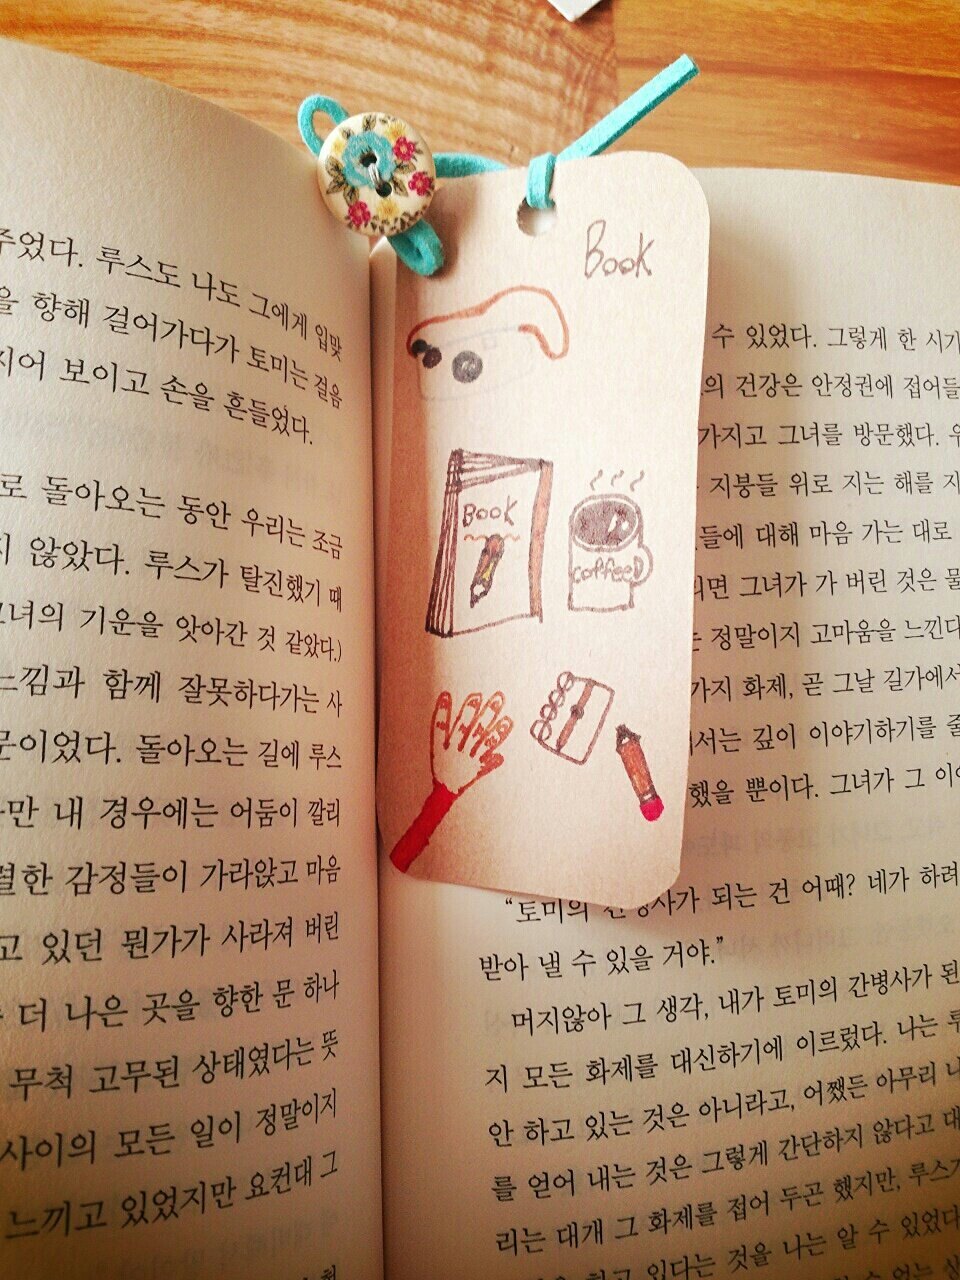 주었다. 루스도 나도 그에게 입맞
을 향해 걸어가다가 토미는 걸음
시어 보이고 손을 흔들었다.
로 돌아오는 동안 우리는 조금
지 않았다. 루스가 탈진했기 때
그녀의 기운을 앗아간 것 같았다.)
느낌과 함께 잘못하다가는 사
문이었다. 돌아오는 길에 루스
만 내 경우에는 어둠이 깔리
렬한 감정들이 가라앉고 마음
고 있던 뭔가가 사라져 버린
더 나은 곳을 향한 문 하나
무척 고무된 상태였다는 뜻
사이의 모든 일이 정말이지
느끼고 있었지만 요컨대 그
Book
BOOK
coffee
수 있었다. 그렇게 한 시기
의 건강은 안정권에 접어들
가지고 그녀를 방문했다. 우
지붕들 위로 지는 해를 지
들에 대해 마음 가는 대로
되면 그녀가 가 버린 것은 물
는 정말이지 고마움을 느낀다
가지 화제, 곧 그날 길가에서
서는 깊이 이야기하기를 줄
했을 뿐이다. 그녀가 그 이야
“토미의 간병사가 되는 건 어때? 네가 하려
받아 낼 수 있을 거야.”
머지않아 그 생각, 내가 토미의 간병사가 된
지 모든 화제를 대신하기에 이르렀다. 나는 루
안 하고 있는 것은 아니라고, 어쨌든 아무리 나
를 얻어 내는 것은 그렇게 간단하지 않다고 대
리는 대개 그 화제를 접어 두곤 했지만, 루스가
하고 있다는 것을 나는 알 수 있었다